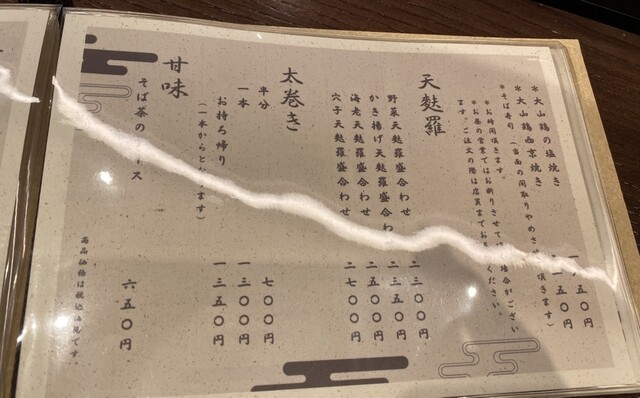 ＊大山鶏の塩焼き 五〇円
＊大山鶏西京焼き 一五〇円
＊そば寿司(当面の間取りやめさせ 頂きます)
＊お時間頂きます。
＊お茶の営業ではお断りさせて 場合がござい
ます。ご注文の際は店員までお ください
天麩羅
野菜天麩羅盛合わせ 二三〇〇円
かき揚げ天麩羅盛合わ 二三五〇円
海老天麩羅盛合わせ 二七〇〇円
穴子天麩羅盛合わせ 二七〇〇円
太巻き
半分 七〇〇円
一本 一三〇〇円
お持ち帰り 一三五〇円
(一本からと ます)
甘味
そば茶の ス 六五〇円
商品価格は税込 です。